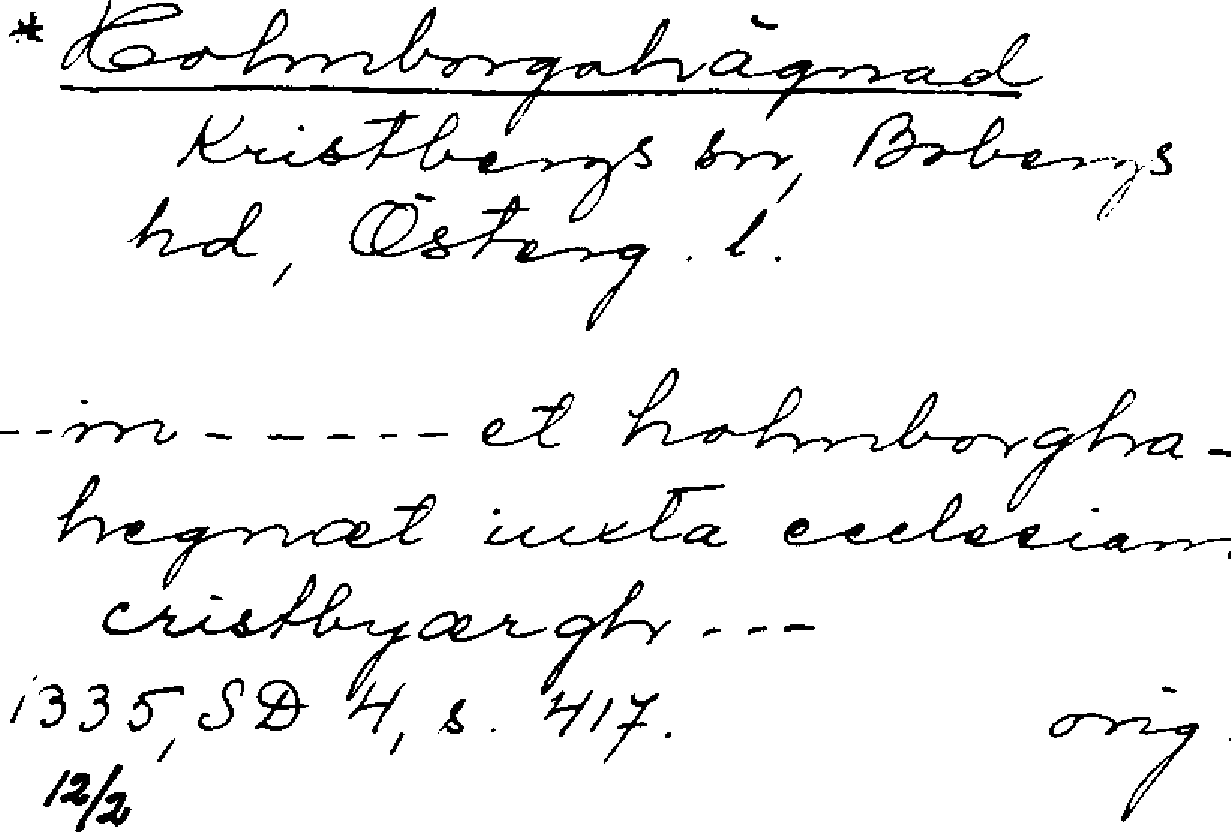 * Holmborgahägnad
Kristbergs sn, Bobergs
hd, Österg. l.
--in------ et holmborgha-
hegnæt iuxta ecclesiam
cristbyærgh ---
1335, SD 4, s. 417. orig.
12/2